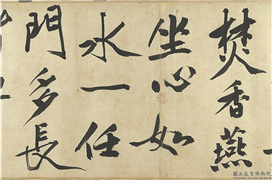 焚香燕
坐心如
水一任
門多長
國立故宮博物院